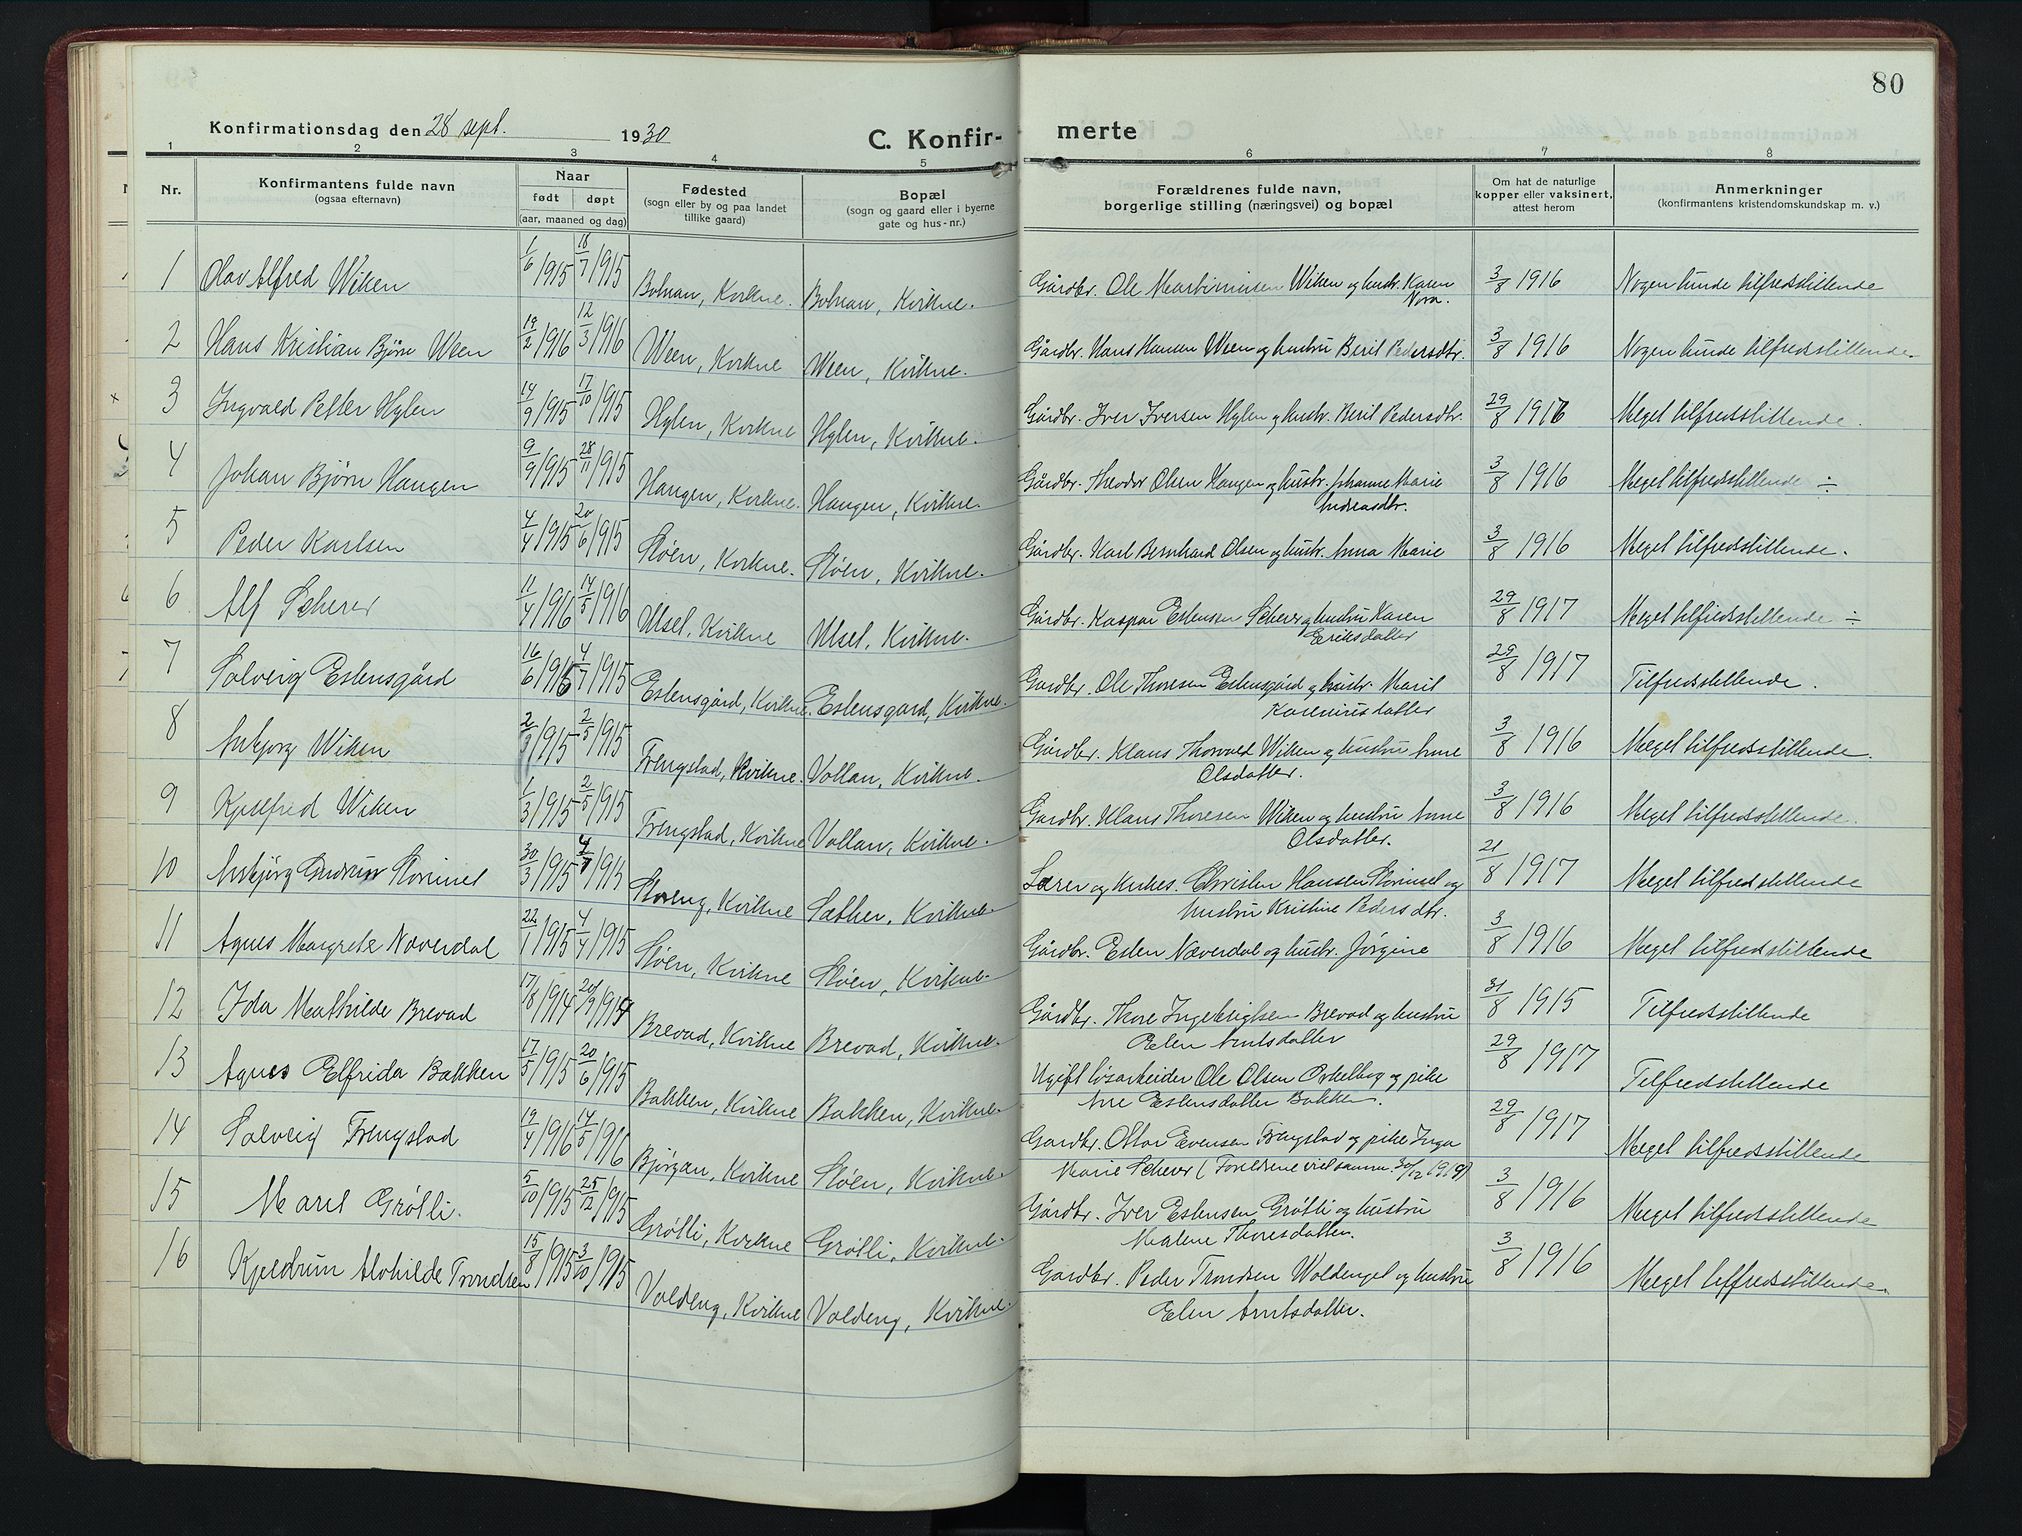 80
Konfirmationsdag den 28 sept. 1930
C. Konfirmerte
1 2 3 4 5 6 7 8
Nr.
Konfirmantens fulde navn
(ogsaa efternavn)
Naar
født døpt
(aar, maaned og dag)
Fødested
(sogn eller by og paa landet
tillike gaard)
Bopæl
(sogn og gaard eller i byerne
gate og hus-nr.)
Forældrenes fulde navn,
borgerlige stilling (næringsvei) og bopæl
Om hat de naturlige
kopper eller vaksinert,
attest herom
Anmerkninger
(konfirmantens kristendomskundskap m. v.)
1 Olav Alfred Wiken 1/6 1915 18/7 1915 Kvikne. Kvikne. Gårdbr. Ole Wiken og hustr. Karen 3/8 1916 Nogenlunde tilfredsstillende
Nora.
2 Hans Kristian Bjørn Ween 19/2 1916 12/3 1916 Ween, Kvikne Ween, Kvikne. Gårdbr. Hans Hansen Ween og hustru Berit Pedersdtr. 3/8 1916 Nogenlunde tilfredsstillende.
3 Ingvald Petter Hylen 14/9 1915 17/10 1915 Hylen, Kvikne Hylen, Kvikne. Gårdbr. Iver Iversen Hylen og hustr. Berit Pedersdtr. 29/8 1916 Meget tilfredsstillende.
4 Johan Bjørn Haugen 9/9 1915 28/11 1915 Haugen, Kvikne. Haugen, Kvikne. Gårdbr. Theodor Olsen Haugen og hustr. Johanne Marie 3/8 1916 Meget tilfredsstillende ÷
Andreasdtr.
5 Peder Karlsen 4/4 1915 20/6 1915 Støen, Kvikne. Støen, Kvikne. Gårdbr. Karl Bernhard Olsen og hustr. Anna Marie 3/8 1916 Meget tilfredsstillende.
6 Alf Scherer 11/4 1916 14/5 1916 Utset, Kvikne Utset, Kvikne. Gårdbr. Kaspar Estensen Scherer og hustru Karen 29/8 1917 Meget tilfredsstillende ÷
Eriksdatter
7 Solveig Estensgård 16/6 4/7 1915 Estensgård, Kvikne. Estensgard, Kvikne. Gardbr. Ole Thoresen Estensgård og hustr. Marit 29/8 1917 Tilfredsstillende.
8 Anbjorg Wiken 1915 2/5 1915 Frengstad, Kvikne. Vollan, Kvikne. Gårdbr. Klaus Thorvald Wiken og hustru Anne 3/8 1916 Meget tilfredsstillende.
Olsdatter.
9 Kjellfred Wiken 1/3 1915 2/5 1915 Frengstad, Kvikne Vollan, Kvikne. Gårdbr. Klaus Thoresen Wiken og hustru Anne 3/8 1916 Meget tilfredsstillende.
Olsdatter.
10 Anbjørg Gudrun Storimet 30/3 1915 Storeng, Kvikne Sæther, Kvikne. Lærer og kirkes. Christen Hansen Storimet og 21/8 1917 Meget tilfredsstillende
hustru Kristine Pedersdtr.
11 Agnes Margrete Næverdal 22/1 1915 4/4 1915 Støen, Kvikne Støen, Kvikne. Gårdbr. Esten Næverdal og hustr. Jørgine 3/8 1916 Meget tilfredsstillende
12 Ida Mathilde Brevad 17/8 1914 20/9 1914 Brevad, Kvikne Brevad, Kvikne. Gårdbr. Thore Ingebrigtsen Brevad og hustru 31/8 1915 Tilfredsstillende
Elen Arntsdatter
13 Agnes Elfrida Bakken 17/5 1915 20/6 1915 Bakken, Kvikne Bakken, Kvikne. Ugift løsarbeider Ole Olsen og pike 29/8 1917 Tilfredsstillende
Estensdatter Bakken.
14 Solveig Frengstad 19/4 1916 14/5 1916 Bjørgan, Kvikne Støen, Kvikne. Gardbr. Ottar Evensen Frengstad og pike Inga 29/8 1917 Meget tilfredsstillende
Marie Scherer (Foreldrene viet samm. 30/12 1919)
15 Marit Grøtli. 5/10 1915 25/12 1915 Grøtli, Kvikne Grøtli, Kvikne. Gårdbr. Iver Estensen Grøtli og hustru 3/8 1916 Meget tilfredsstillende
Malene Thoresdatter.
16 Kjeldrun Alvhilde Trondsen 15/8 1915 3/10 1915 Voldeng, Kvikne Voldeng, Kvikne. Gardbr. Peder Trondsen Woldenget og hustru 3/8 1916 Meget tilfredsstillende.
Elen Arntsdatter.